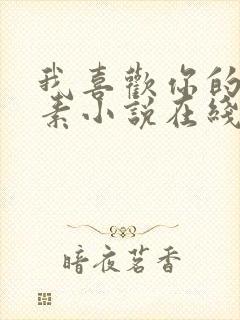 我喜歡你的
素小說在綫
暗夜茗香